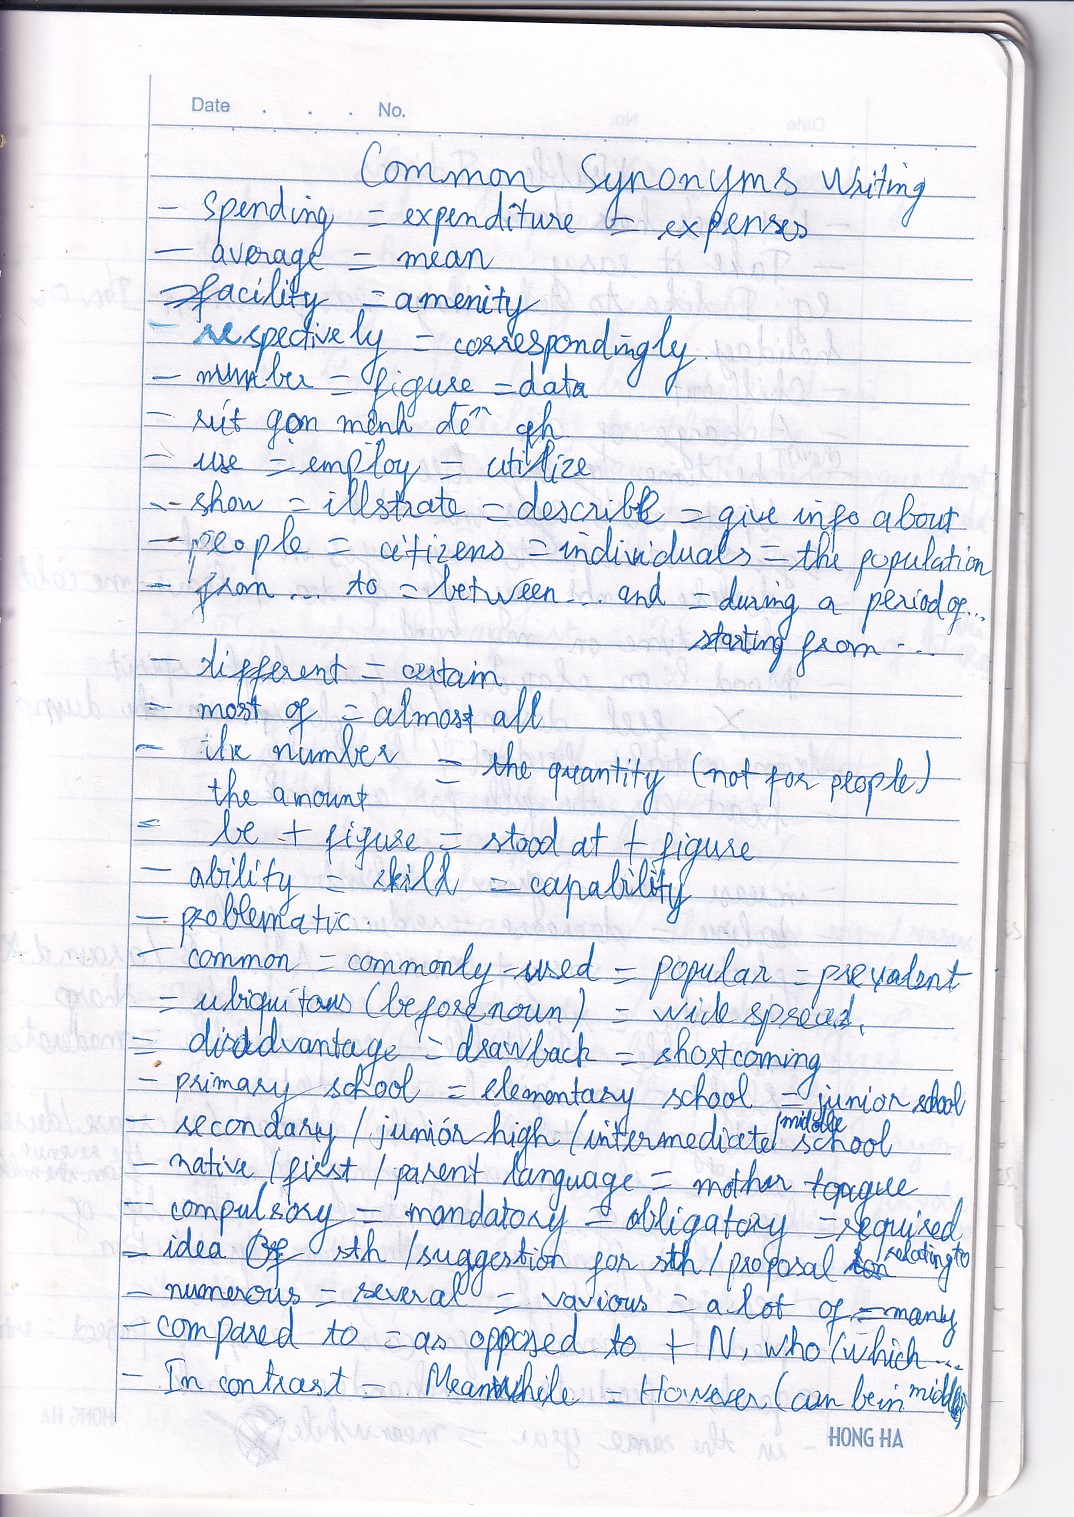 Date . . . No.
Common Synonyms Writing
- spending = expenditure = expenses
- average = mean
- facility = amenity
- respectively = correspondingly
- number = figure = data
- rút gọn mệnh đề qh
- use = employ = utilize
- show = illstrate = describe = give info about
- people = citizens = individuals = the population
- from ... to = between ... and = during a period of...
starting from ...
- different = certain
- most of = almost all
- the number = the quantity (not for people)
the amount
- be + figure = stood at + figure
- ability = skill = capability
- problematic.
+ common = commonly-used = popular = prevalent
= ubiquitous (before noun) = widespread.
= disadvantage = drawback = shortcoming
- primary school = elementary school = junior school
- secondary / junior high / intermediate /middle school
- native / first / parent language = mother tongue
- compulsory = mandatory = obligatory = required
- idea of sth / suggestion for sth / proposal /relating to
- numerous = several = various = a lot of = many
- compared to = as opposed to + N, who / which ...
- In contrast = Meanwhile = However (can be in middle)
HONG HA